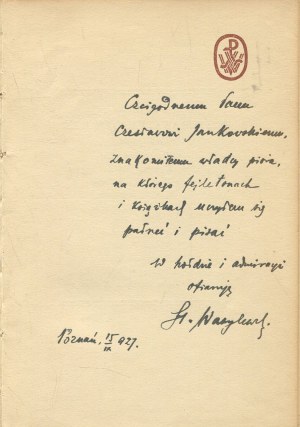 Czcigodnemu Panu
Czesławowi Jankowskiemu,
znakomitemu władcy pióra,
na którego fejletonach
i książkach uczyłem się
patrzeć i pisać
w hołdzie i admiracji
ofiaruję
St. Wasylewski
Poznań, 15/IX 927.